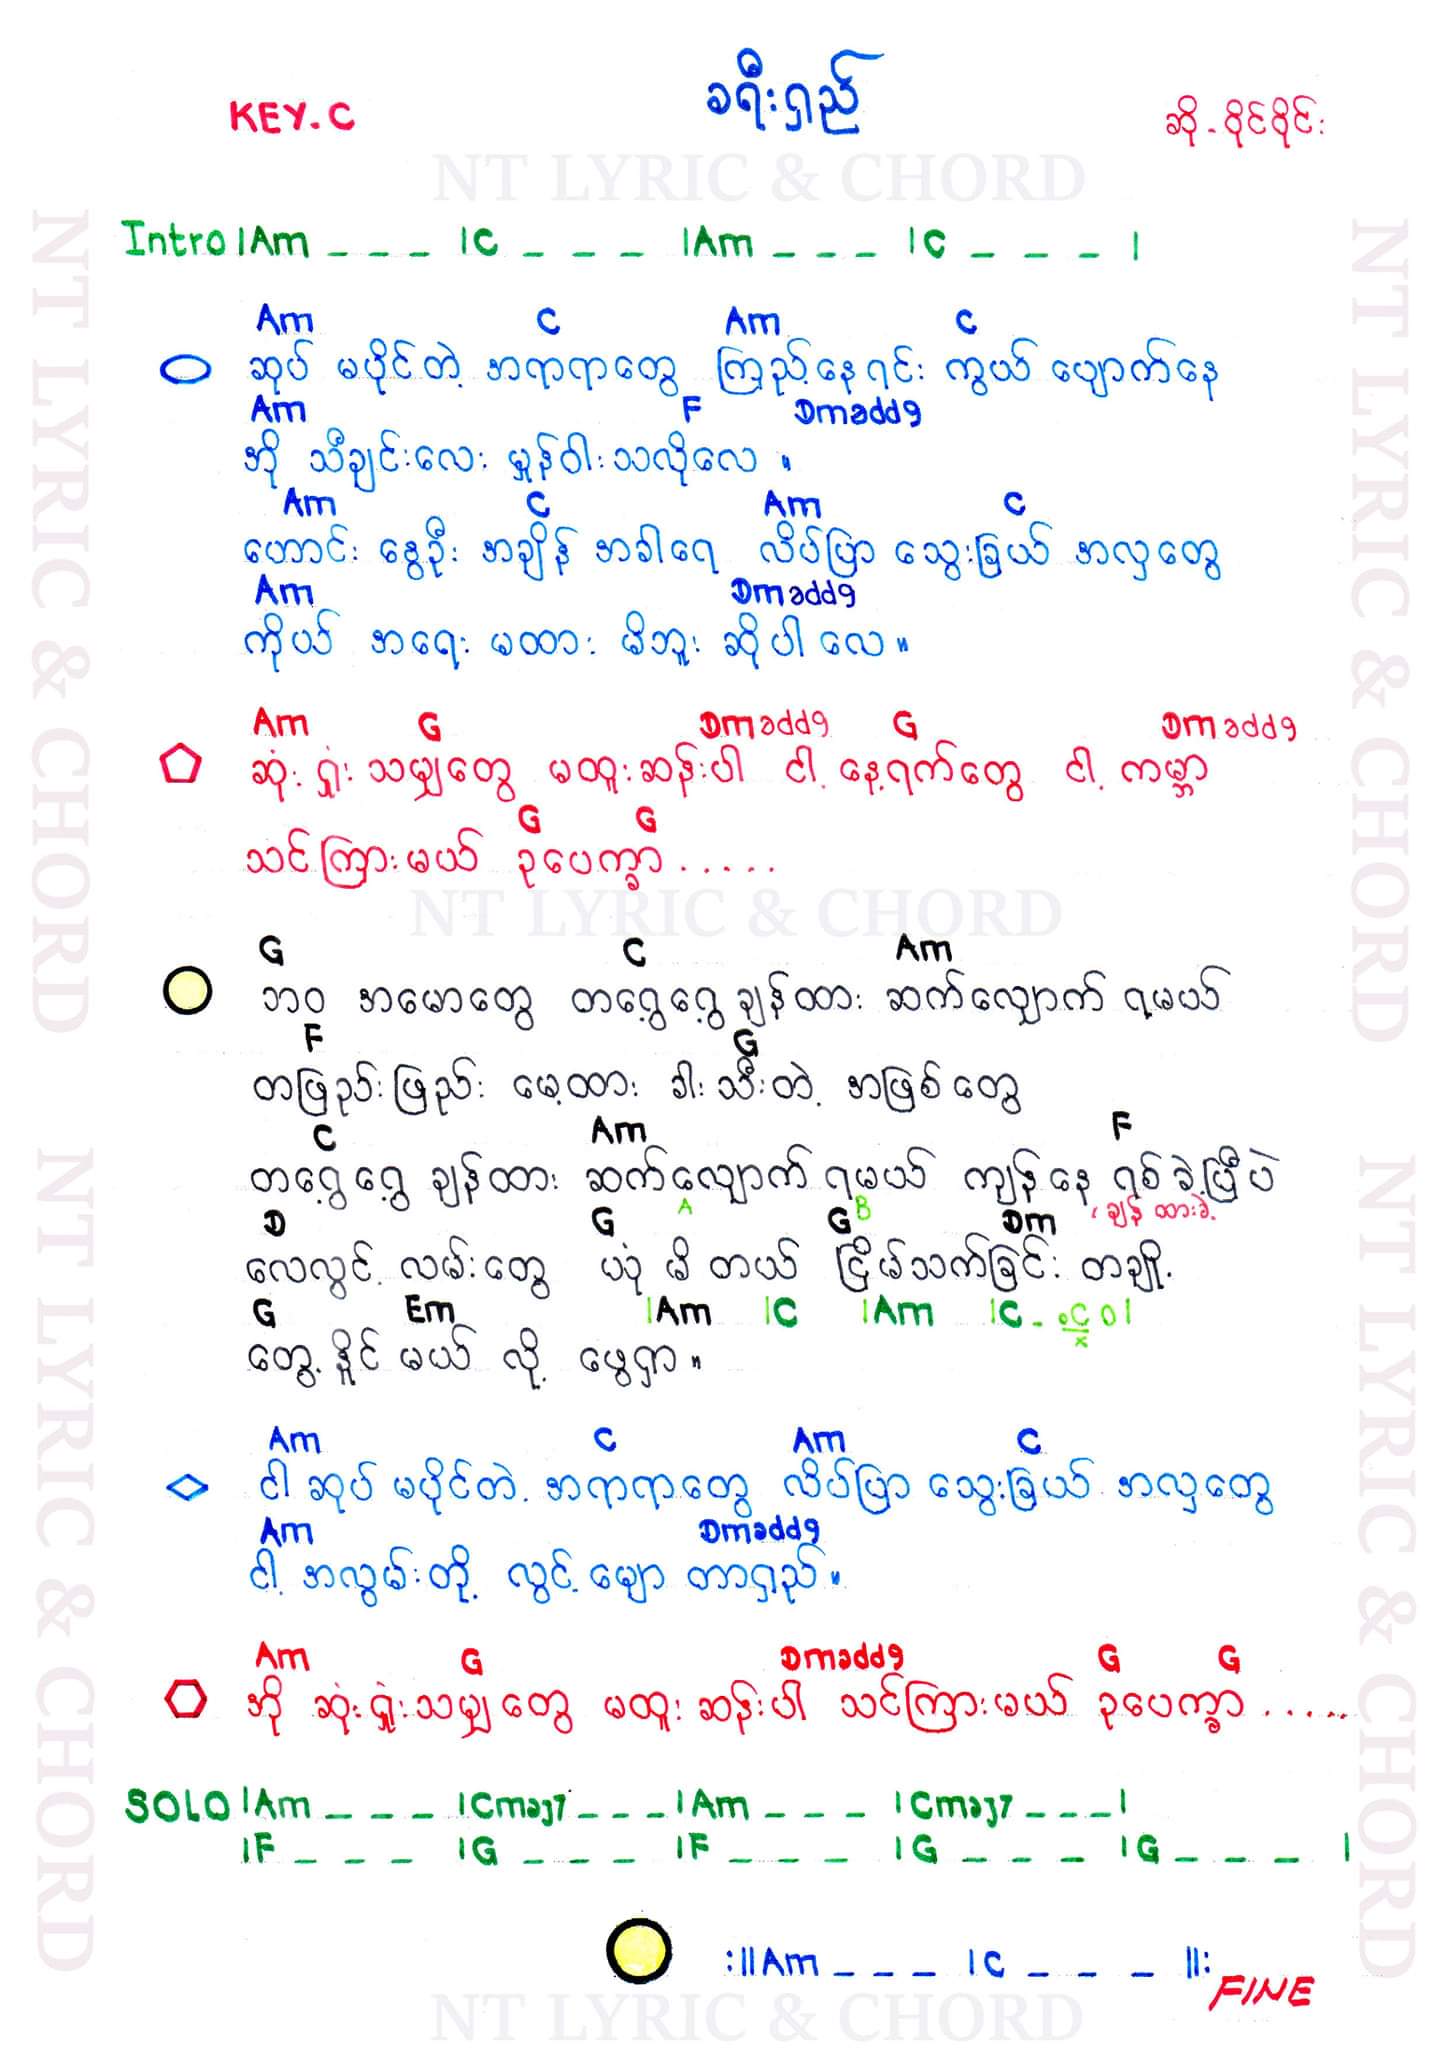 ခရီးရှည်
KEY.C
ဆို - ဝိုင်ဝိုင်း
NT LYRIC & CHORD
Intro |Am _ _ _ |C _ _ _ |Am _ _ _ |C _ _ _ |
Am C Am C
ဆုပ် မပိုင်တဲ့ အရာရာတွေ ကြည့်နေရင်း ကွယ် ပျောက်နေ
Am F Dmadd9
အို သီချင်းလေး မှုန်ဝါးသလိုလေ ။
Am C Am C
ဟောင်း နွေဦး အချိန် အခါရေ လိပ်ပြာ သွေးခြယ် အလှတွေ
Am Dmadd9
ကိုယ် အရေး မထား မိဘူး ဆိုပါ လေ ။
Am G Dmadd9 G Dmadd9
ဆုံး ရှုံး သမျှတွေ မထူးဆန်းပါ ငါ့ နေ့ရက်တွေ ငါ့ ကမ္ဘာ
G G
သင်ကြားမယ် ဥပေက္ခာ . . . . .
NT LYRIC & CHORD
G C Am
ဘဝ အမောတွေ တငွေ့ငွေ့ ချန်ထား ဆက်လျှောက် ရမယ်
F G
တဖြည်းဖြည်း မေ့ထား ခါးသီးတဲ့ အဖြစ်တွေ
C Am F
တငွေ့ငွေ့ ချန်ထား ဆက်လျှောက် ရမယ် ကျန်နေ ရစ်ခဲ့ပြီပဲ
A B ချန် ထားခဲ့
D G G Dm
လေလွင့် လမ်းတွေ ယုံ မိ တယ် ငြိမ်သက်ခြင်း တချို့
G Em |Am |C |Am |C -
တွေ့နိုင် မယ် လို့ ဖွေရှာ ။
Am C Am C
ငါ ဆုပ် မပိုင်တဲ့ အရာရာတွေ လိပ်ပြာ သွေးခြယ် အလှတွေ
Am Dmadd9
ငါ့ အလွမ်းတို့ လွင့် မျော တာရှည် ။
Am G Dmadd9 G G
အို ဆုံးရှုံးသမျှ တွေ မထူး ဆန်းပါ သင်ကြားမယ် ဥပေက္ခာ . . . . . .
SOLO |Am _ _ _ |Cmaj7 _ _ _ |Am _ _ _ |Cmaj7 _ _ _ |
|F _ _ _ |G _ _ _ |F _ _ _ |G _ _ _ |G _ _ _ |
:||Am _ _ _ |C _ _ _ ||:
FINE
NT LYRIC & CHORD
NT LYRIC & CHORD
NT LYRIC & CHORD
NT LYRIC & CHORD
NT LYRIC & CHORD